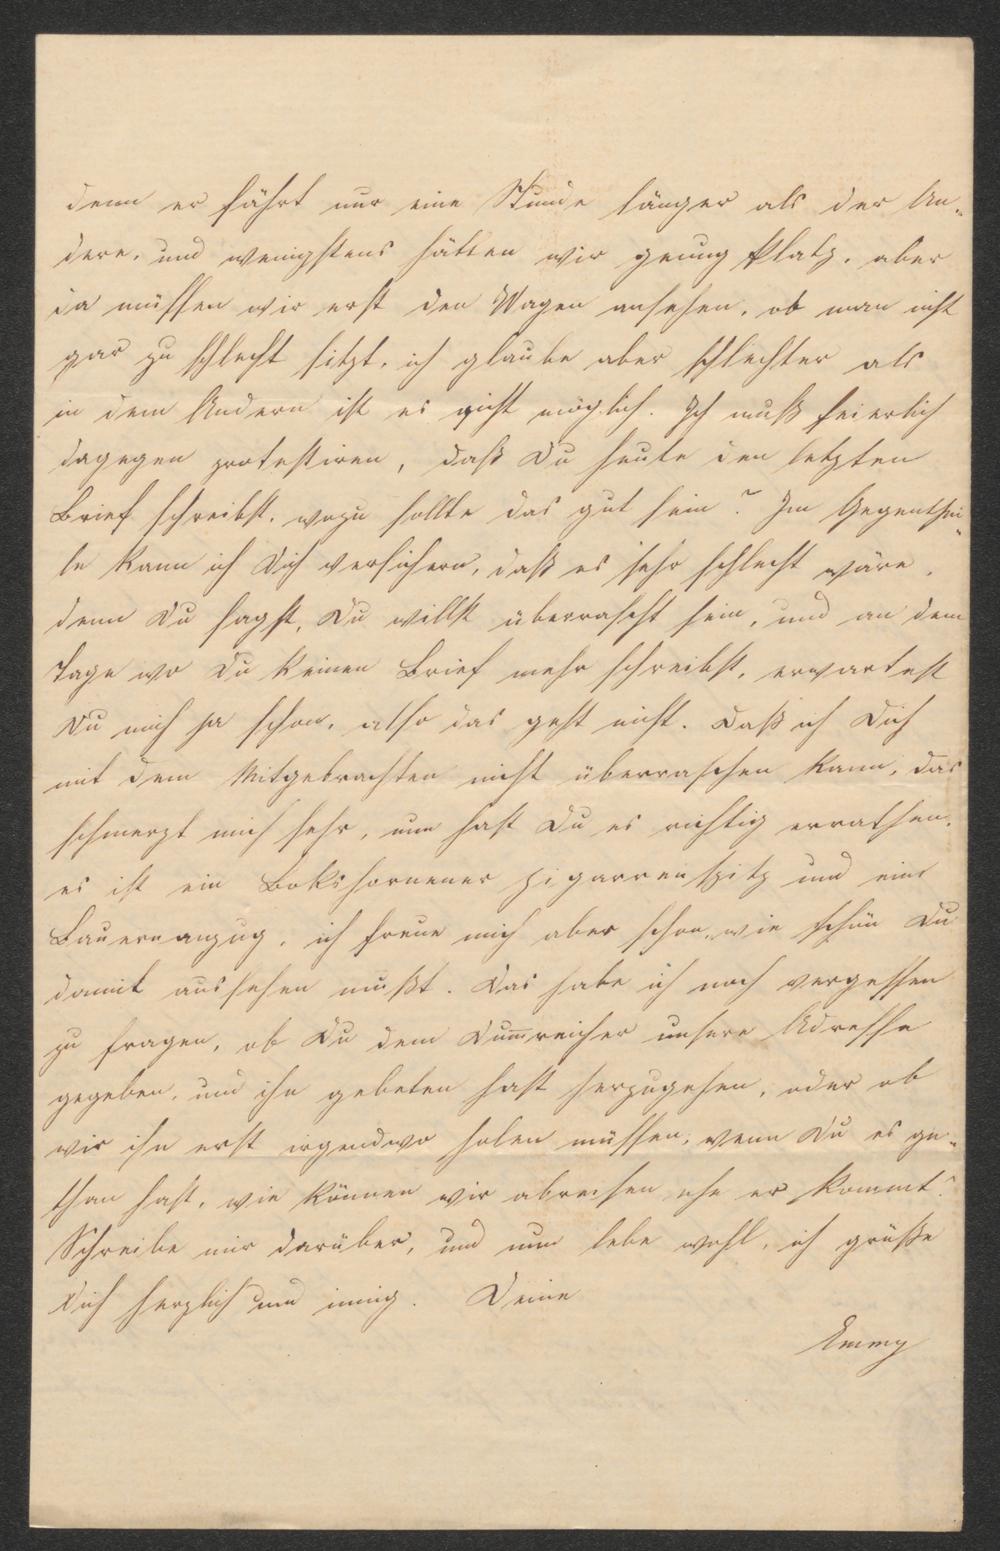 denn er fährt nur eine Stunde länger als der An-
dere, und wenigstens hätten wir genug Platz, aber
da müssen wir erst den Wagen ansehen, ob man nicht
gar zu schlecht sitzt, ich glaube aber schlechter als
in dem Andern ist es nicht möglich. Ich muß feierlich
dagegen protestiren, daß Du heute den letzten
Brief schreibst, wozu sollte das gut sein? Im Gegenthei-
le kann ich Dich versichern, daß es sehr schlecht wäre,
denn Du sagst, Du willst überrascht sein, und an dem
Tage wo Du keinen Brief mehr schreibst, erwartest
Du mich ja schon, also das geht nicht. Daß ich Dich
mit dem Mitgebrachten nicht überraschen kann, das
schmerzt mich sehr, nun hast Du es richtig errathen,
es ist ein Bokshornener Zigarrenspitz und ein
Bauernanzug, ich freue mich aber schon, wie schön Du
damit aussehen mußt. Das habe ich noch vergessen
zu fragen, ob Du dem Dum̅reicher unsere Adresse
gegeben, und ihn gebeten hast herzugehen, oder ob
wir ihn erst irgendwo holen müssen, wenn Du es ge-
than hast, wie können wir abreisen ehe er kommt?
Schreibe mir darüber, und nun lebe wohl, ich grüße
Dich herzlich und innig. Deine
Emmy